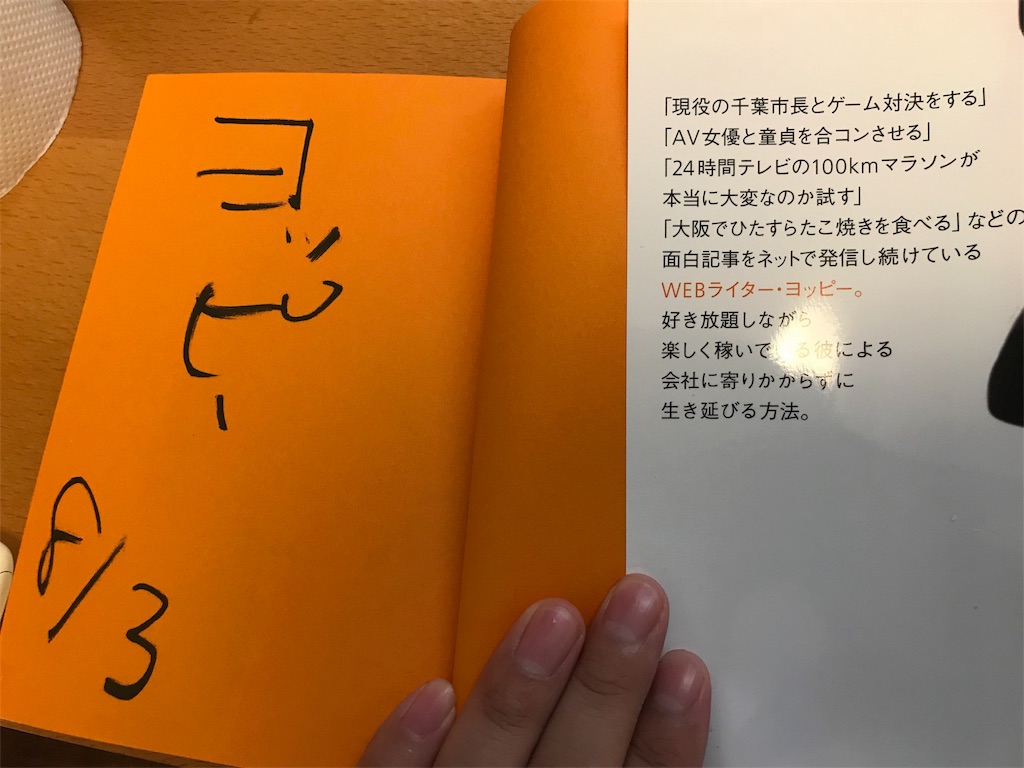 ヨッピー
8/3
「現役の千葉市長とゲーム対決をする」
「AV女優と童貞を合コンさせる」
「24時間テレビの100kmマラソンが
本当に大変なのか試す」
「大阪でひたすらたこ焼きを食べる」などの
面白記事をネットで発信し続けている
WEBライター・ヨッピー。
好き放題しながら
楽しく稼いでいる彼による
会社に寄りかからずに
生き延びる方法。